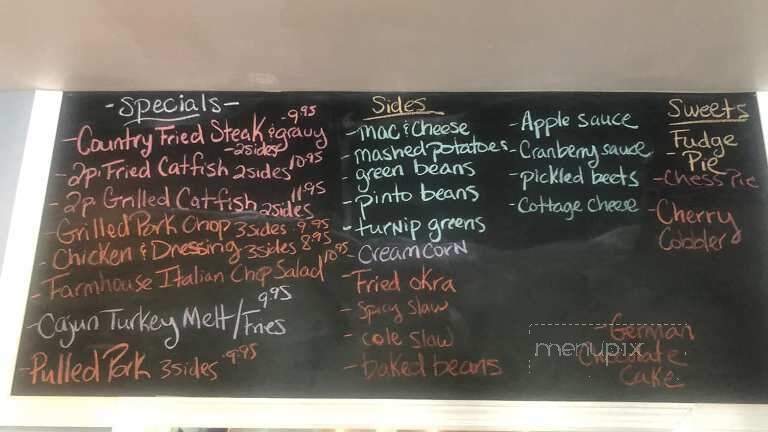 -Specials-
-Country Fried Steak & gravy 9.95
-2sides
-2p. Fried Catfish 2sides 10.95
-2p. Grilled Catfish 2sides 11.95
-Grilled Pork Chop 3sides 9.95
-Chicken & Dressing 3sides 8.95
-Farmhouse Italian Chop Salad 10.95
-Cajun Turkey Melt/Fries 9.95
-Pulled Pork 3sides 9.95
Sides
-mac & cheese
-mashed potatoes
-green beans
-pinto beans
-turnip greens
-Cream Corn
-Fried okra
-Spicy slaw
-cole slaw
-baked beans
-Apple sauce
-Cranberry sauce
-pickled beets
-Cottage cheese
Sweets
Fudge
-Pie
-Chess Pie
-Cherry
Cobbler
-German
Chocolate
Cake
menupix